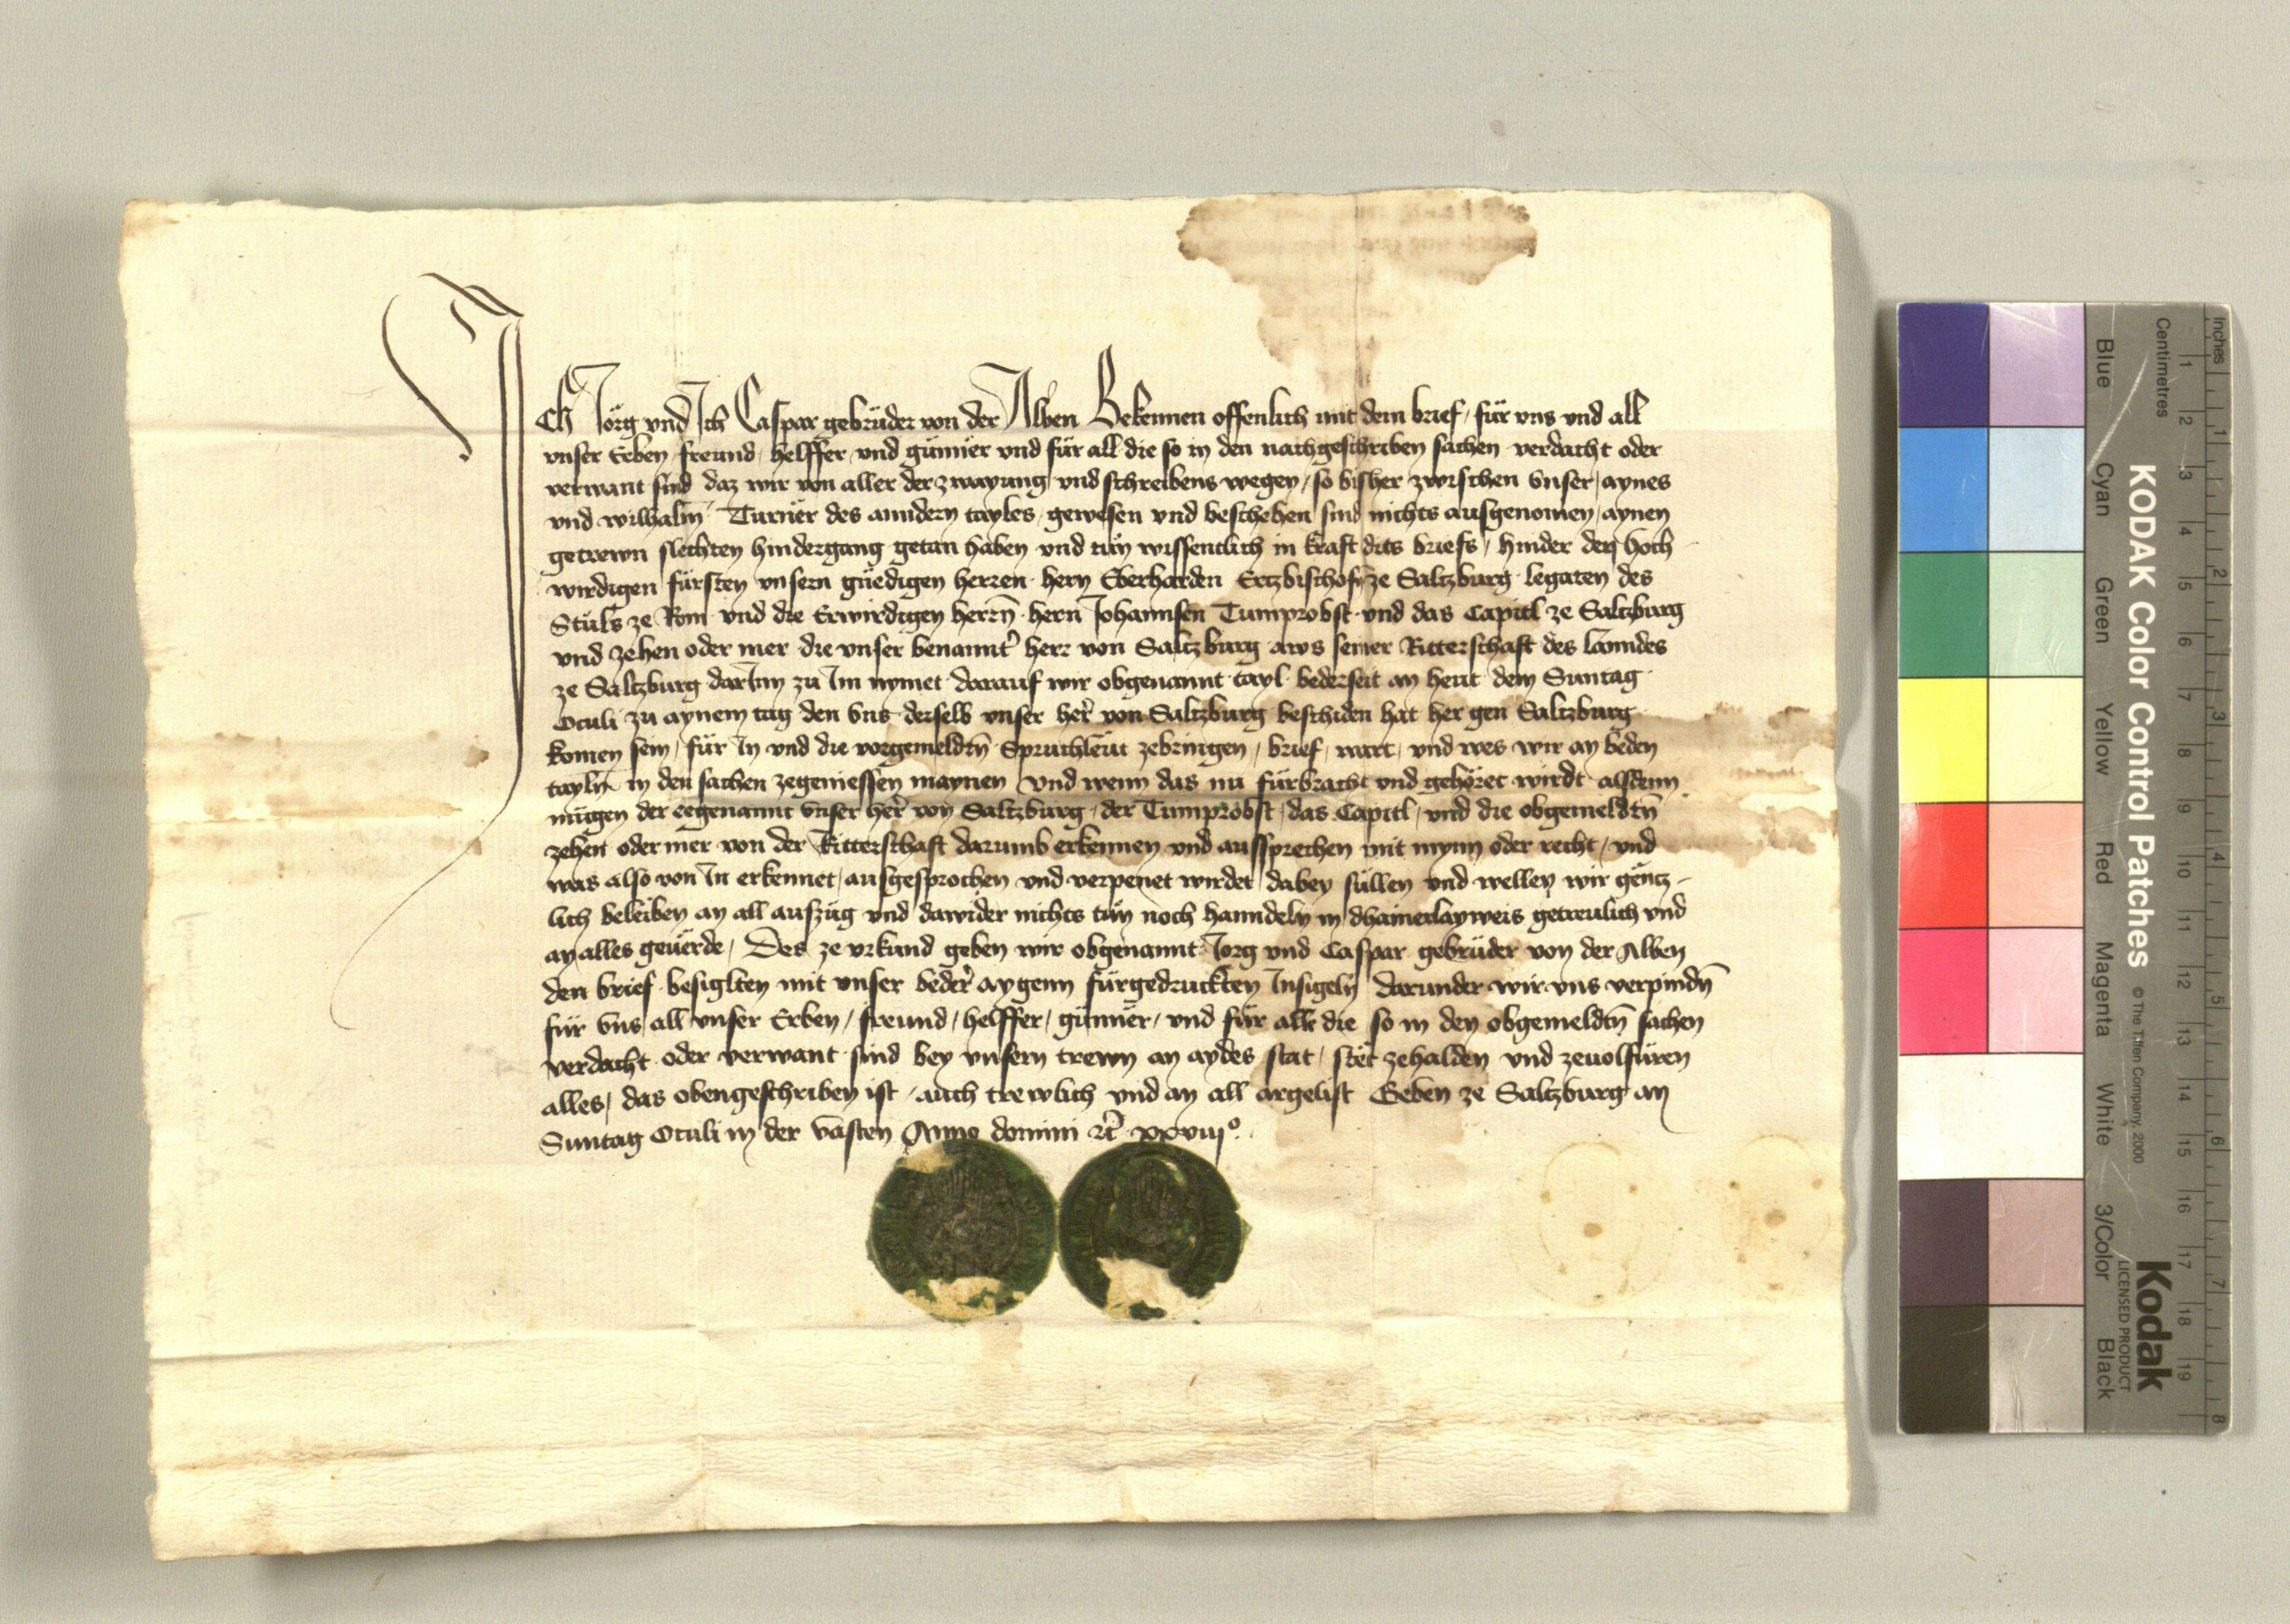 Ich Jörg vnd Ich Caspar gebrüder von der Alben Bekennen offenlich mit dem brief, für vns vnd all
vnser Erben, freund, helffer, vnd günner vnd für all die so in den nachgeschriben sachen verdacht oder
verwant sind daz wir von aller der zwayung vnd schreibens wegen, so bisher zwischen vnser, aynes
vnd wilhalm Turner des anndern tayles, gewesen vnd beschehen sind nichts ausgenomen, aynen
getrewn slechten hindergang getan haben vnd tün wissentlich in kraft dits briefs, hinder den hoch
wirdigen fürsten vnsern gnedigen herren hern Eberharden Ertzbischof ze Saltzburg legaten des
Stuls ze Rom vnd die Erwirdigen herrn̄ hern Johannsen Tumprobst vnd das Capitl ze Saltzburg
vnd zehen oder mer die vnser benannt' herr von Saltzburg aws seiner Ritterschaft des lanndes
ze Saltzburg darInn zu Im nymet darauf wir obgenannt tayl bederseit an heut dem Suntag
Oculi zu aynem tag den vns derselb vnser her' von Saltzburg beschiden hat her gen Saltzburg
komen sein, für In vnd die vorgemeldtn̄ Spruchlewt zebringen, brief, wart, vnd was wir an beden
tayln in den sachen zegeniessen maynen vnd wenn das nu fürbracht vnd gehöret wirdt alsdenn
mügen der eegenannt vnser her' von Saltzburg, der Tumprobst, das Capitl, vnd die obgemeldtn̄
zehen oder mer von der Ritterschaft darumb erkennen vnd aussprechen mit mynn oder recht, vnd
was also von In erkennet, ausgesprochen vnd verpenet wirdet dabey süllen vnd wellen wir gentz-
lich beleiben an all auszüg vnd dawider nichts tün noch hanndeln in dhainerlayweis getreulich vnd
an alles geuerde, Des ze vrkund geben wir obgenannt Jorg vnd Caspar gebrüder von der Alben
den brief besiglten mit vnser beder' aygenn fürgedruckten Insigeln darunder wir vns verpindn̄
für vns, all vnser Erben, freund, helffer, günner, vnd für alle die so in den obgemeldtn̄ sachen
verdacht oder verwant sind bey vnsern trewn an aydes stat, stet zehalden vnd zeuolfüren
alles, das obengeschriben ist, auch trewlich vnd an all argelist Geben ze Saltzburg an
Suntag Oculi in der vasten Anno domini etc̄ xxviijº.
KODAK Color Control Patches © The Tiffen Company, 2000
Kodak
LICENSED PRODUCT
Blue Cyan Green Yellow Red Magenta White 3/Color Black
Centimetres
1 2 3 4 5 6 7 8 9 10 11 12 13 14 15 16 17 18 19
Inches
1 2 3 4 5 6 7 8